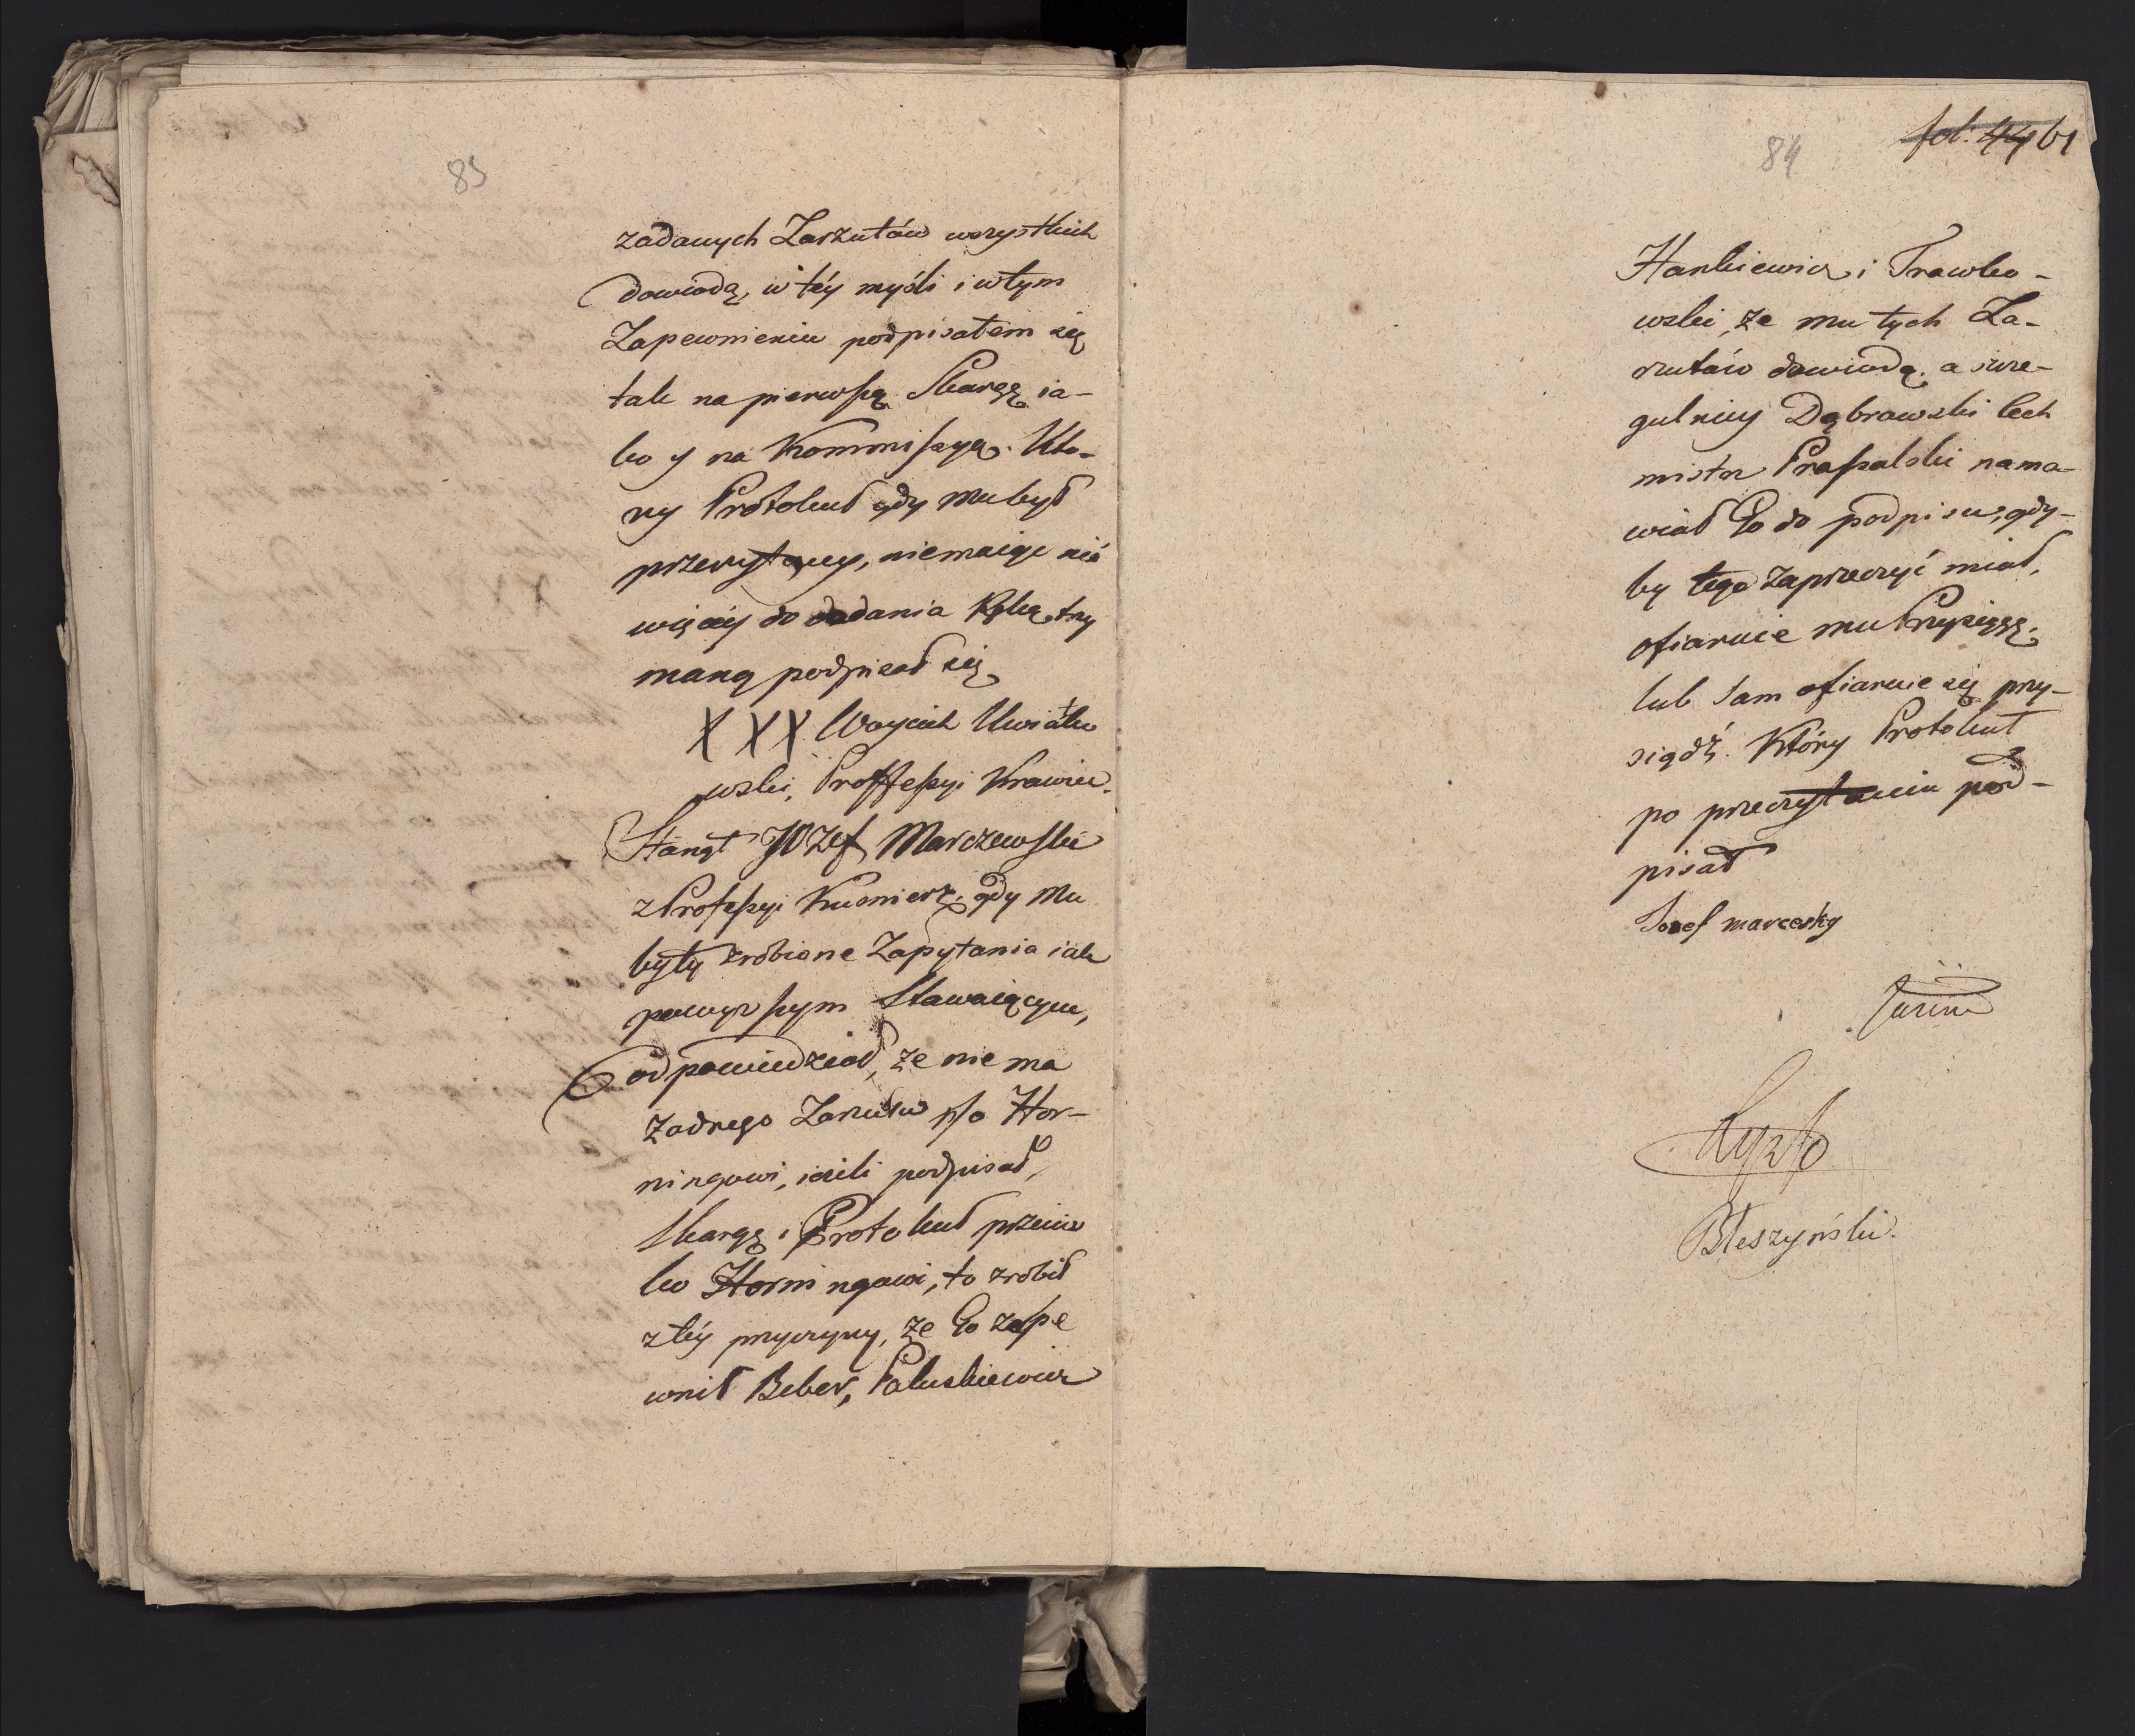 83
zadanych Zarzutów wszystkich
dowiodą, w téy myśli i w tym
Zapewnieniu podpisałem się
tak na pierwszą Skargę ia-
ko y na Kommissyą. Któ-
ry Protokuł gdy mu był
przeczytany, niemaiąc nic
więcéy do dodania Ręką trzy
maną podpisał się
X X X Woyciech Kwiatko
wski, Proffessyi Krawiec.
Stanął Józef Marczewski
z Professyi Kusnierz, gdy mu
były zrobione Zapytania iak
powyższym Stawaiącym,
odpowiedział, że nie ma
żadnego Zarzutu p/o Hor-
ningowi, ieżeli podpisał,
Skargę i Protokuł przeciw
ko Horningowi, to zrobił
z téy przyczyny, że Go zape
wnił Beber, Paluskiewicz
84
fol: 44 61
Hankiewicz i Trawko-
wski, że mu tych Za-
rzutów dowiodą, a szcze-
gulniey Dąbrowski Cech
mistrz Prassalski nama-
wiał Go do podpisu, gdy-
by tego zaprzeczyć miał,
ofiaruie mu Przysięgę,
lub sam ofiaruie się przy-
siądź. Który Protokuł
po przeczytaniu pod-
pisał
Iozef marcesky
Błeszyński.